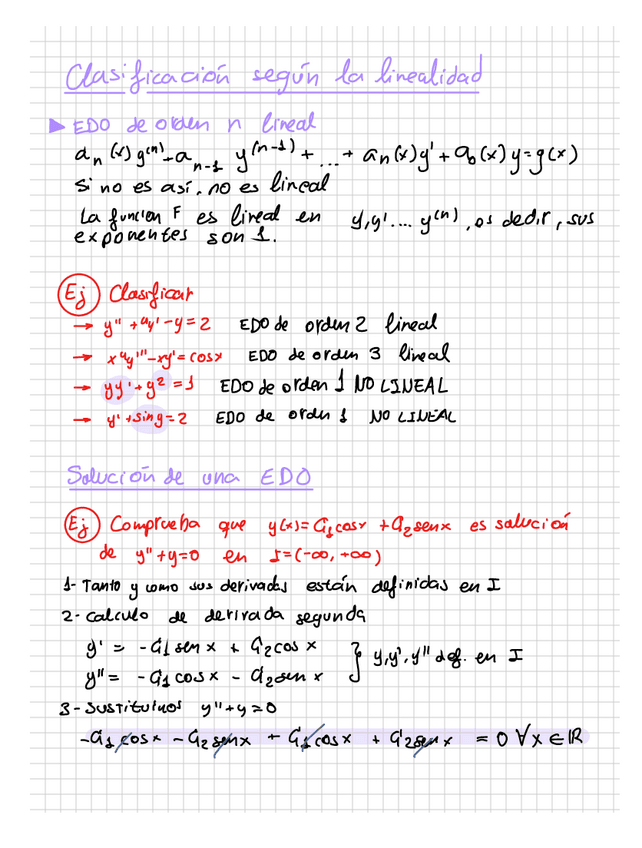 Clasificación según la linealidad
▶ EDO de orden n lineal
a_n(x)y^(n) + a_{n-1} y^(n-1) + ... + a_n(x)y' + a_0(x)y = g(x)
Si no es así, no es lineal
La funcion F es lineal en y, y' .... y^(n), es decir, sus
exponentes son 1.
Ej Clasificar
→ y'' + 4y' - y = 2 EDO de orden 2 lineal
→ x^4y''' - xy' = cosx EDO de orden 3 lineal
→ yy' + y² = 1 EDO de orden 1 NO LINEAL
→ y' + sin y = 2 EDO de orden 1 NO LINEAL
Solución de una EDO
Ej Comprueba que y(x) = C₁cosx + C₂senx es solución
de y'' + y = 0 en I = (-∞, +∞)
1- Tanto y como sus derivadas están definidas en I
2- Calculo de derivada segunda
y' = -C₁ sen x + C₂ cos x
y'' = -C₁ cos x - C₂ sen x } y, y', y'' def. en I
3- Sustituimos y'' + y = 0
-C₁ cos x - C₂ sen x + C₁ cos x + C₂ sen x = 0 ∀x ∈ ℝ